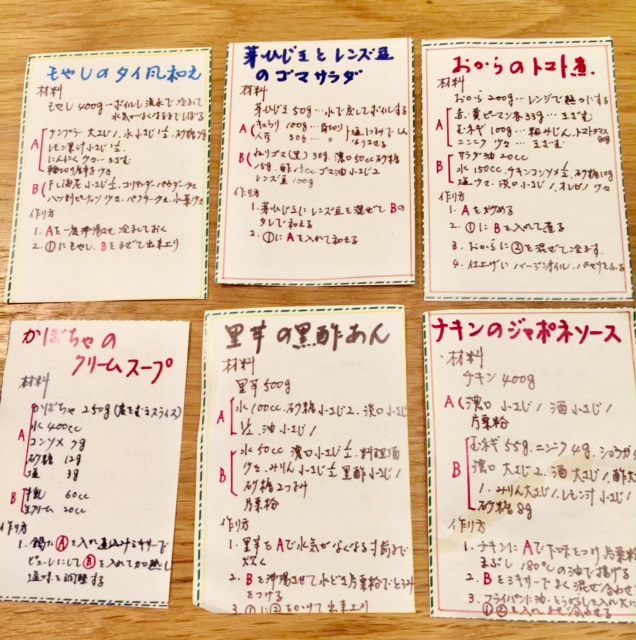 もやしのタイ風和え
材料
もやし 400g…ボイルし流水で冷まして
水気がなくなるまでしぼる
A
ナンプラー 大さじ1/2、水小さじ1/2、砂糖
レモン果汁 小さじ1/2
にんにく 少々…みじん
輪切り唐辛子 少々
B
干し海老 小さじ1/2、コリアンダーパウダー少々
八ツ割ピーナッツ 少々、パクチー少々、小葉少々
作り方
1. Aを一度沸騰させ冷ましておく
2. ①にもやし、Bをまぜて出来上り
芽ひじきとレンズ豆
のゴマサラダ
材料
芽ひじき 50g…水で戻してボイルする
A
きゅうり 100g…
人参 50g
B
ねりゴマ(黒) 30g、濃口 50cc 砂糖
15g、酢 15cc ゴマ油 小さじ2
レンズ豆 100g
作り方
1. 芽ひじきにレンズ豆を混ぜてBの
タレで和える
2. ①にAを入れて和える
おからのトマト煮
材料
おから 200g…レンジで熱々にする
A
赤、黄ピーマン各33g…みじん
むネギ 100g…粗みじん、トマトホール
ニンニク 少々…みじん
B
サラダ油 20cc
水 150cc、チキンコンソメ1/2、砂糖10g
塩少々、淡口 小さじ1、オレガノ少々
作り方
1. Aを炒める
2. ①にBを入れて煮る
3. おからに②を混ぜて冷ます
4. 仕上げにバージンオイル、パセリをふる
かぼちゃの
クリームスープ
材料
A
かぼちゃ 250g(皮をむきスライス)
水 400cc
コンソメ 7g
砂糖 12g
塩 3g
B
牛乳 60cc
生クリーム 20cc
作り方
1. 鍋にⒶを入れ煮込みミキサーで
ピューレにしてⒷを入れて加熱し
塩味を調整する
里芋の黒酢あん
材料
里芋 500g
A
水 100cc、砂糖 小さじ2、淡口 小さじ
1/2、油 小さじ1
B
水 50cc 濃口 小さじ1/2、料理酒
少々、みりん 小さじ1/2 黒酢 小さじ1
砂糖 2つまみ
片栗粉
作り方
1. 里芋をAで水気がなくなる寸前まで
炊く
2. Bを沸騰させて水どき片栗粉でとろみ
をつける
3. ①に②をかけて出来上り
チキンのジャポネソース
・材料
チキン 400g
A
濃口 小さじ1 酒 小さじ1
片栗粉
B
むネギ 55g、ニンニク 4g、ショウガ
濃口 大さじ2、酒 大さじ1、酢大さじ
1、みりん大さじ1、レモン汁 小さじ1
砂糖 8g
作り方
1. チキンにAで下味をつけ片栗粉
まぶし 180℃の油で揚げる
2. Bをミキサーでよく混ぜ合わせ
3. フライパンに油、とうがらしを入れ
①②を入れ